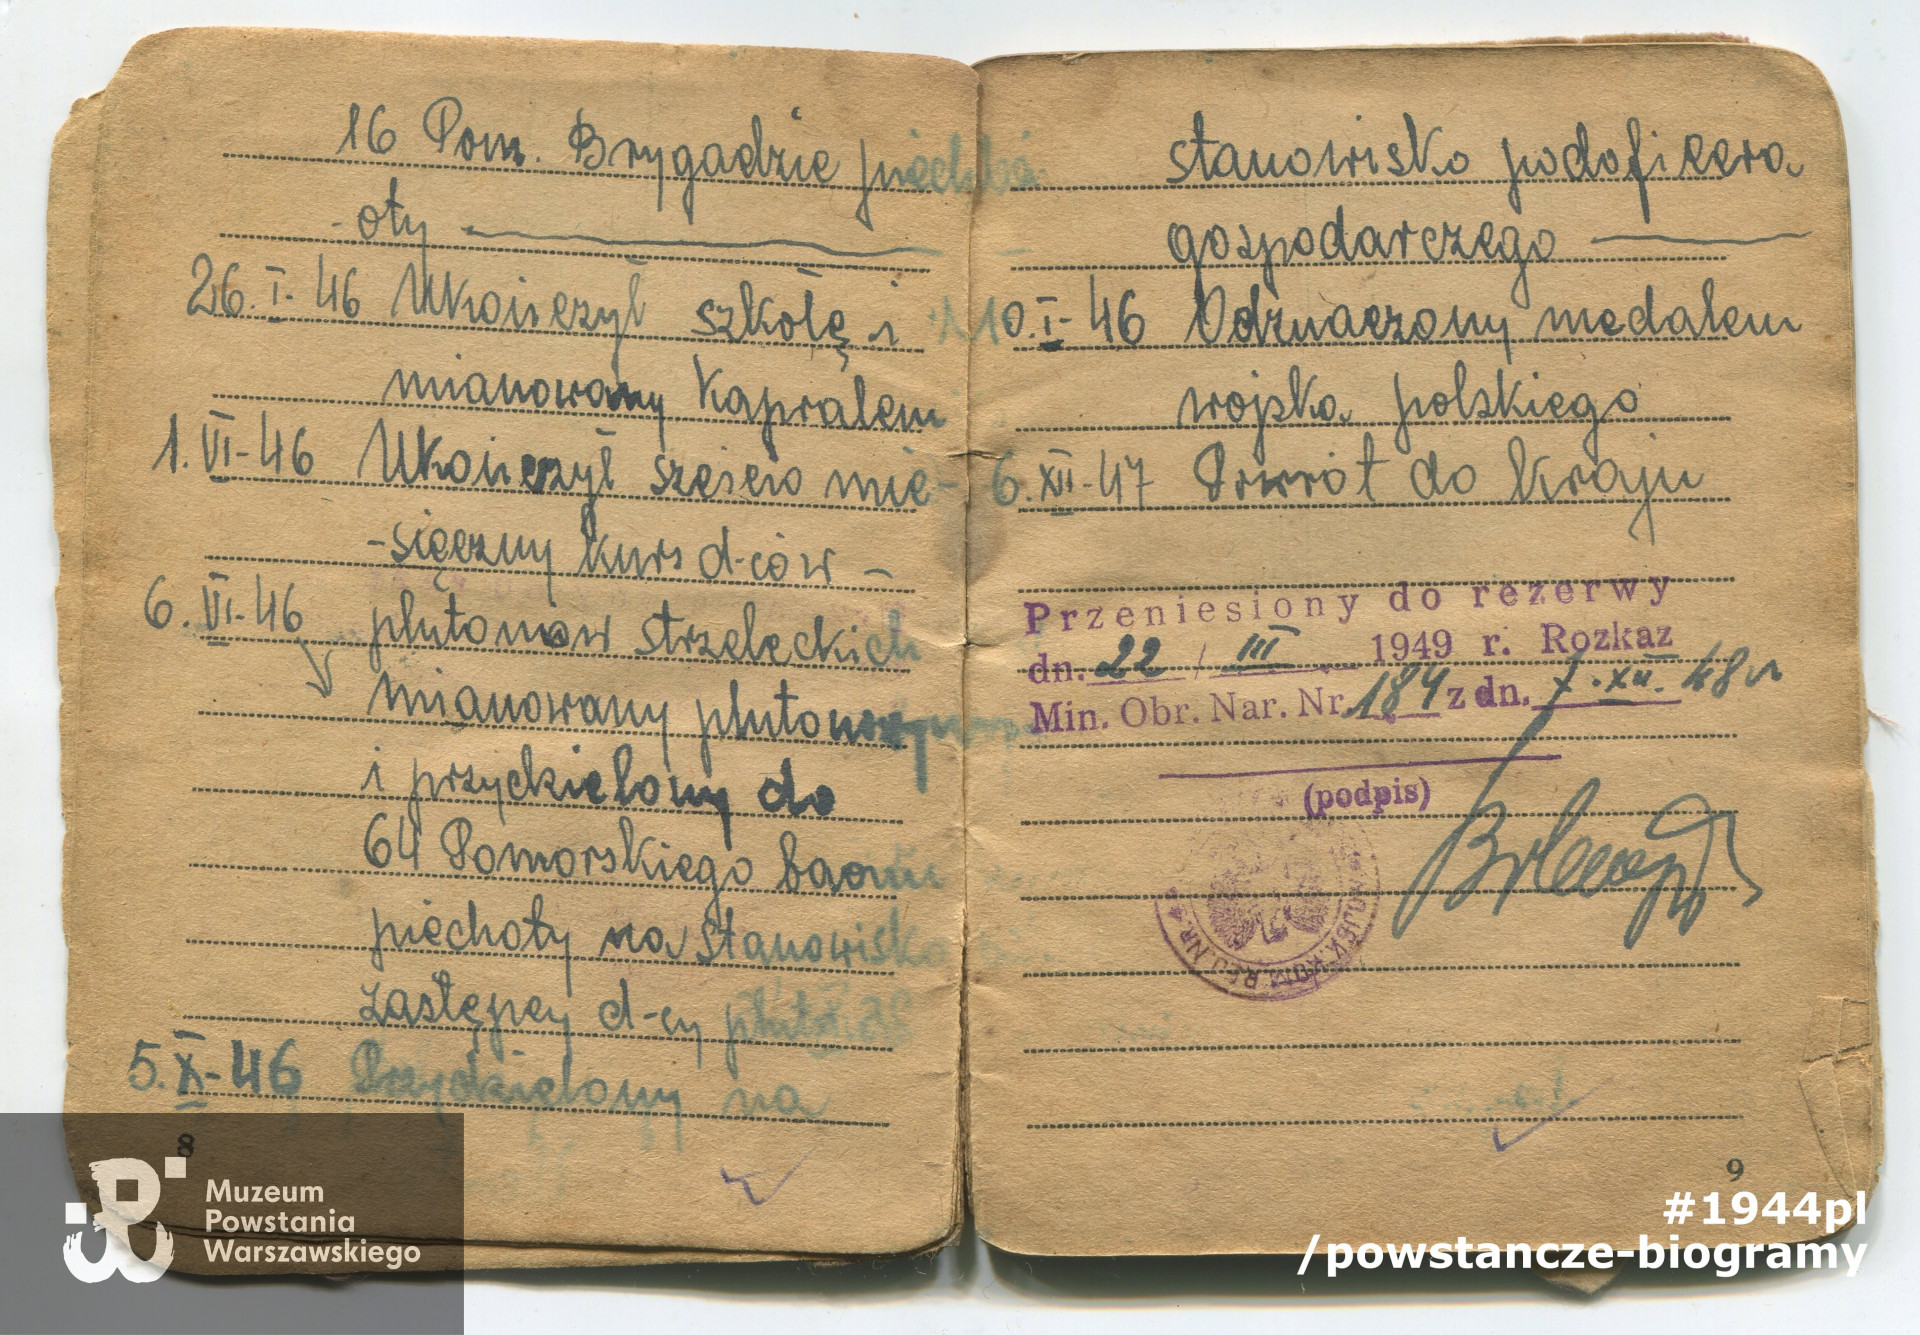 16 Pom. Brygadzie piecho
-oty
26.I-46 Ukończył szkołę i
mianowany kapralem
1.VI-46 Ukończył sześcio mie-
-sięczny kurs d-ców -
6.VI-46 plutonów strzeleckich
mianowany plutonowym
i przydzielony do
64 Pomorskiego baonu
piechoty na stanowisko
zastępcy d-cy
5.X-46 Przydzielony na
8
stanowisko podoficera
gospodarczego
10.I-46 Odznaczony medalem
wojska polskiego
6.XII-47 Powrót do Kraju
Przeniesiony do rezerwy
dn. 22 / III 1949 r. Rozkaz
Min. Obr. Nar. Nr. 184 z dn. 7.XII.48 r
(podpis)
REJ. KOM.
9
Muzeum
Powstania
Warszawskiego
#1944pl
/powstancze-biogramy